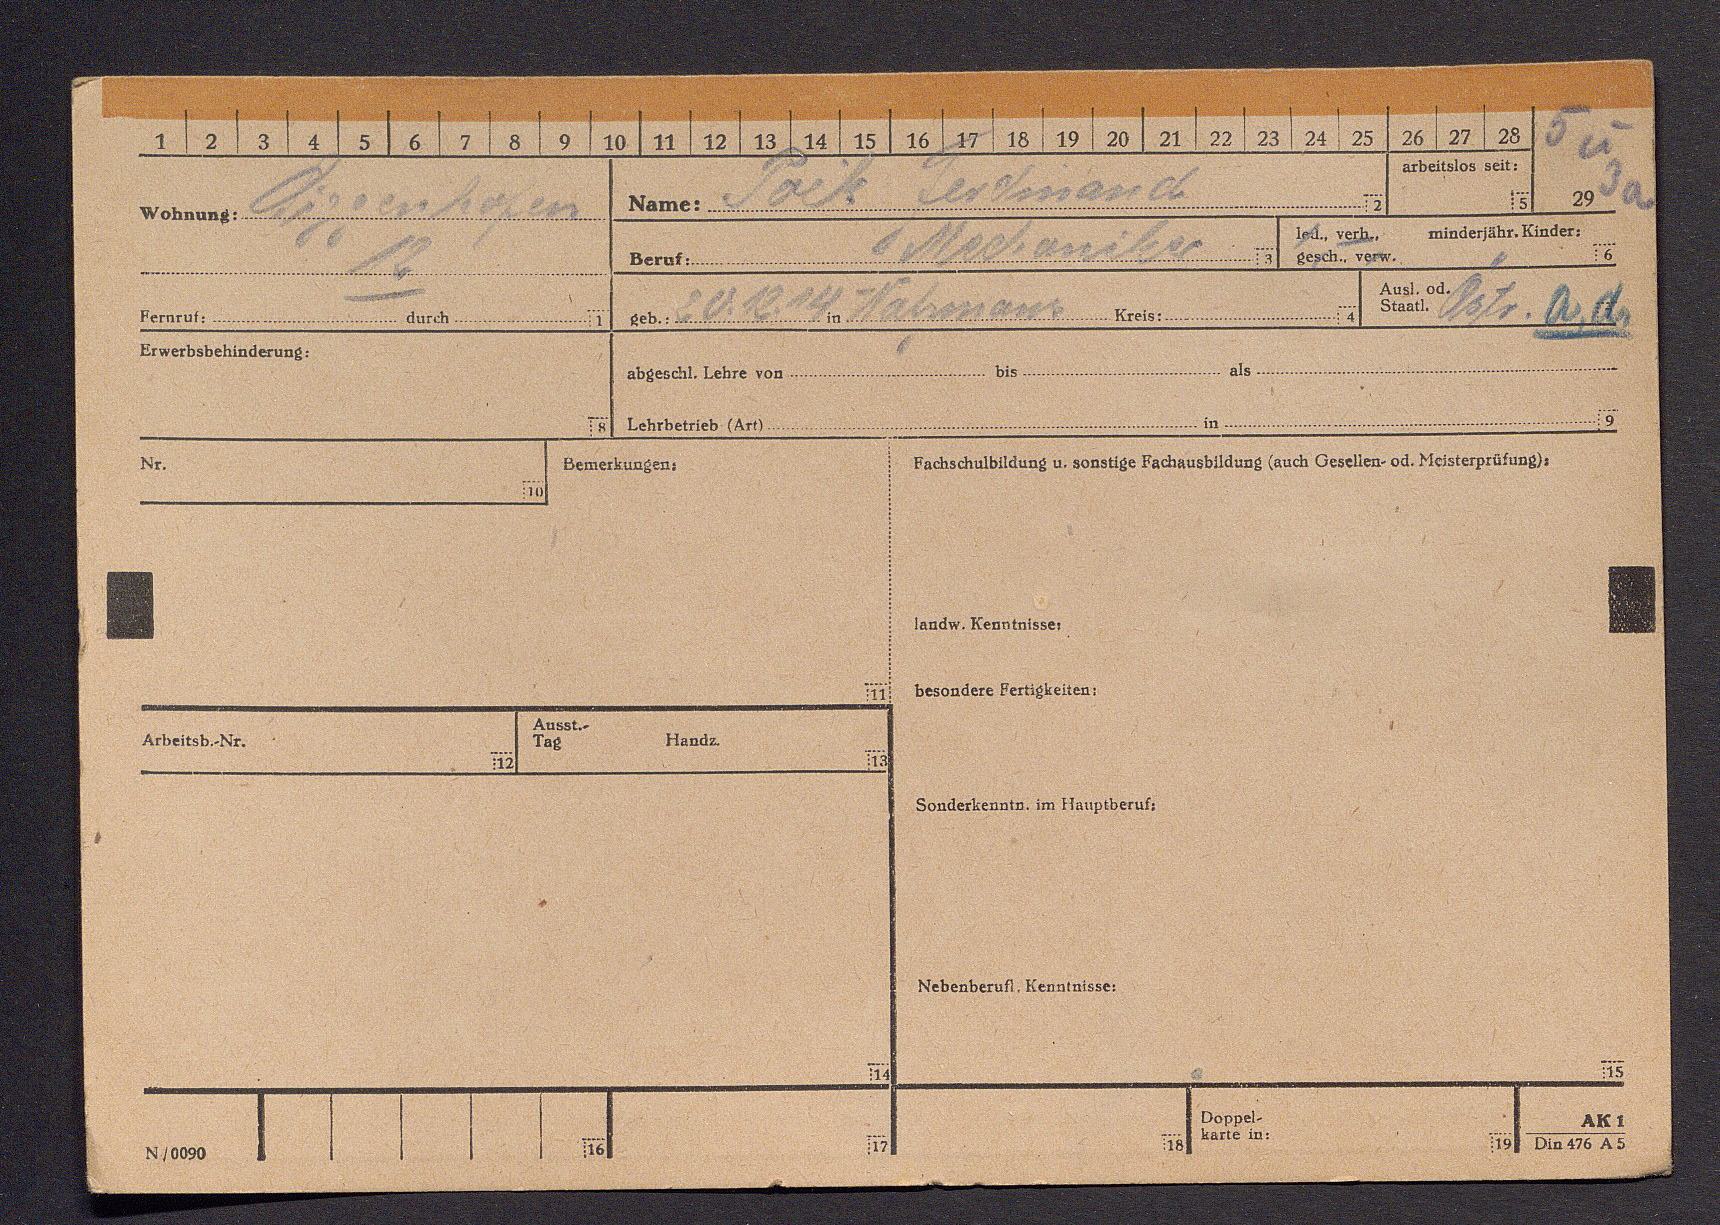 1 2 3 4 5 6 7 8 9 10 11 12 13 14 15 16 17 18 19 20 21 22 23 24 25 26 27 28
5 u
3a
arbeitslos seit:
5
29
Wohnung:
12
Name: Ferdinand
2
Beruf: Mechaniker
3
led., verh., minderjähr. Kinder:
gesch., verw.
6
Fernruf: durch
1
geb.: 20.12.14 in Kreis:
4
Ausl. od.
Staatl. Östr. a. d.
Erwerbsbehinderung:
8
abgeschl. Lehre von bis als
Lehrbetrieb (Art) in
9
Nr.
10
Bemerkungen:
11
Fachschulbildung u. sonstige Fachausbildung (auch Gesellen- od. Meisterprüfung):
landw. Kenntnisse:
besondere Fertigkeiten:
Arbeitsb.-Nr.
12
Ausst.-
Tag Handz.
13
Sonderkenntn. im Hauptberuf:
Nebenberufl. Kenntnisse:
14
15
N/0090
16
17
18
Doppel-
karte in:
19
AK 1
Din 476 A 5